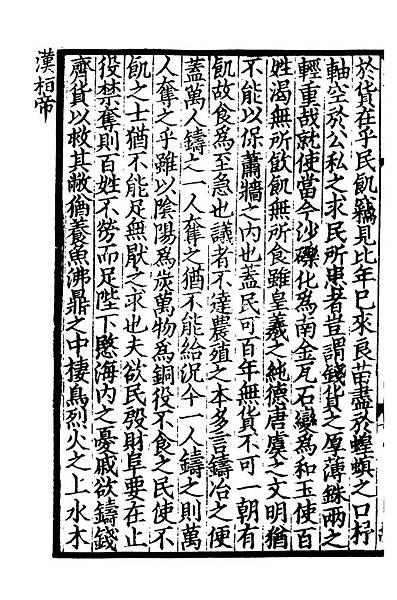 於貨在乎民飢竊見比年已來良苗盡於蝗螟之口杼
軸空於公私之求民所患者豈謂錢貨之厚薄銖兩之
輕重哉就使當今沙礫化為南金瓦石變為和玉使百
姓渴無所飲飢無所食雖皇羲之純德唐虞之文明猶
不能以保蕭牆之內也蓋民可百年無貨不可一朝有
飢故食為至急也議者不達農殖之本多言鑄冶之便
蓋萬人鑄之一人奪之猶不能給況今一人鑄之則萬
人奪之乎雖以陰陽為炭萬物為銅役不食之民使不
飢之士猶不能足無厭之求也夫欲民殷財阜要在止
役禁奪則百姓不勞而足陛下愍海內之憂戚欲鑄錢
齊貨以救其敝猶養魚沸鼎之中棲鳥烈火之上水木
漢桓帝